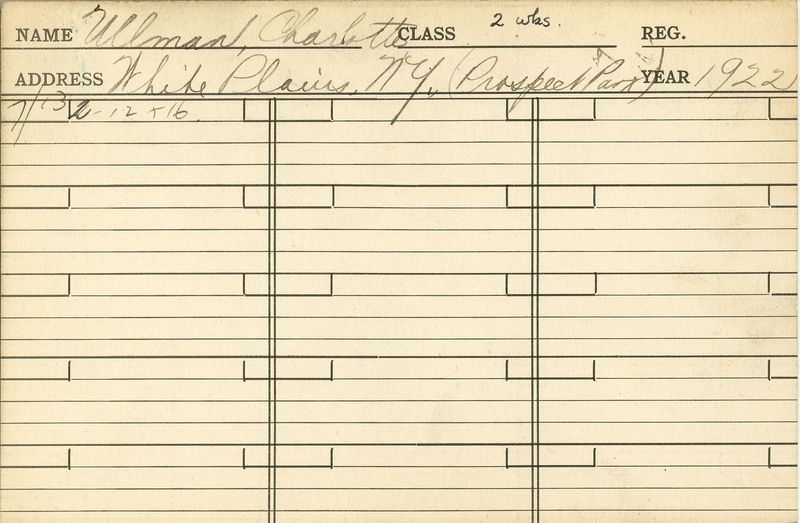 NAME Ullman, Charlotte CLASS 2 wks. REG.
ADDRESS White Plains, N.Y. (Prospect Park) YEAR 1922
7/13 2-12 + 16.